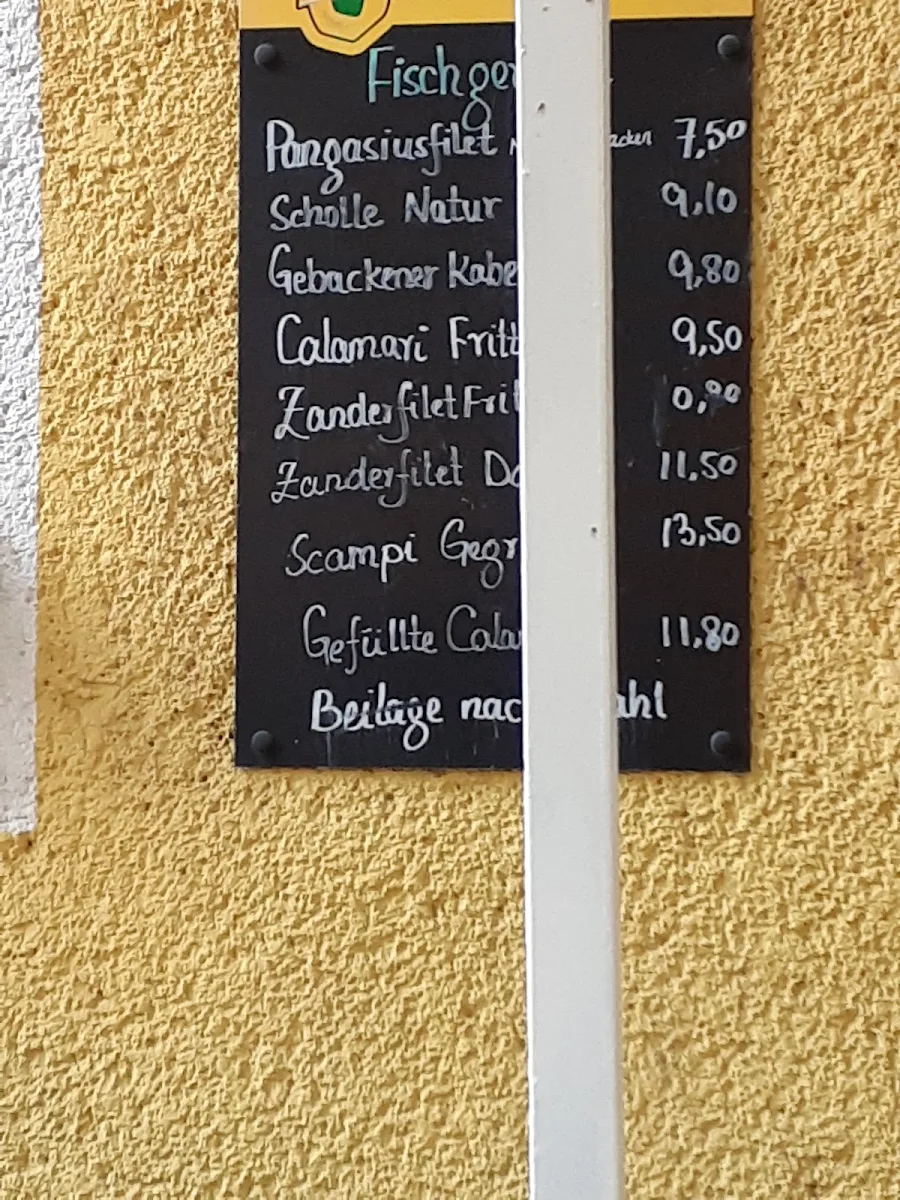 Fischger
Pangasiusfilet 7,50
Scholle Natur 9,10
Gebackener Kabe 9,80
Calamari Fritt 9,50
Zanderfilet Frit 0,90
Zanderfilet Do 11,50
Scampi Gegr 13,50
Gefüllte Cala 11,80
Beilage nac ahl